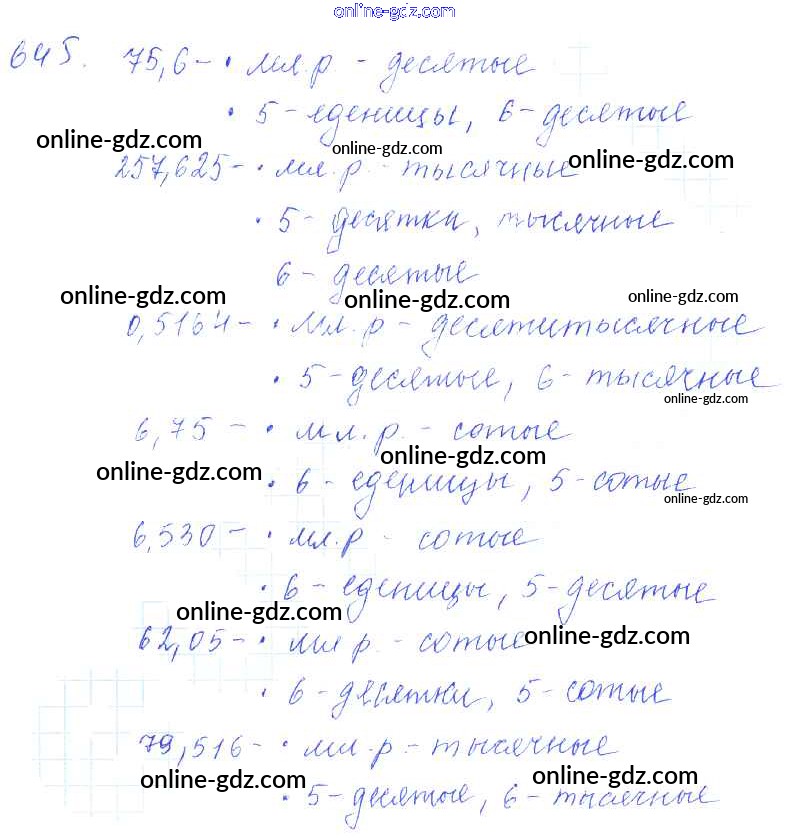 online-gdz.com
645. 75,6 - • мл.р - десятые
• 5 - еденицы, 6 - десятые
online-gdz.com online-gdz.com online-gdz.com
257,625 - • мл.р. - тысячные
• 5 - десятки, тысячные
6 - десятые
online-gdz.com online-gdz.com online-gdz.com
0,5164 - • мл.р - десятитысячные
• 5 - десятые, 6 - тысячные
online-gdz.com
6,75 - • мл.р. - сотые
online-gdz.com online-gdz.com
• 6 - еденицы, 5 - сотые
online-gdz.com
6,530 - • мл.р - сотые
• 6 - еденицы, 5 - десятые
online-gdz.com online-gdz.com
62,05 - • мл р. - сотые
• 6 - десятки, 5 - сотые
79,516 - • мл.р - тысячные
online-gdz.com online-gdz.com
• 5 - десятые, 6 - тысячные